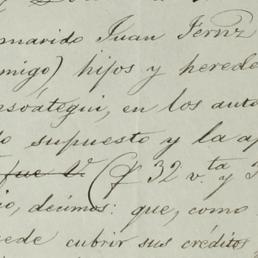 marido Juan Fernz
migo) hijos y herede
nsoátegui, en los auto
lo supuesto y la ap
que V (f 32 v.ta y 3
io, decimos: que, como
ede cubrir sus créditos